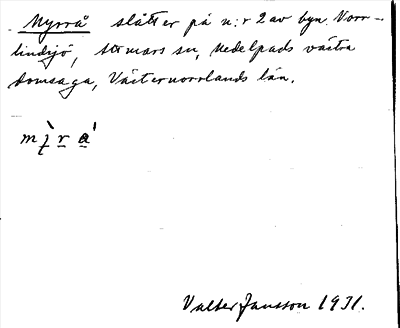 Myrrå slåtter på n:r 2 av byn Norr-
lindsjö, Attmars sn, Medelpads västra
domsaga, Västernorrlands län.
m ỳ̖ r a̍
Valter Jansson 1931.